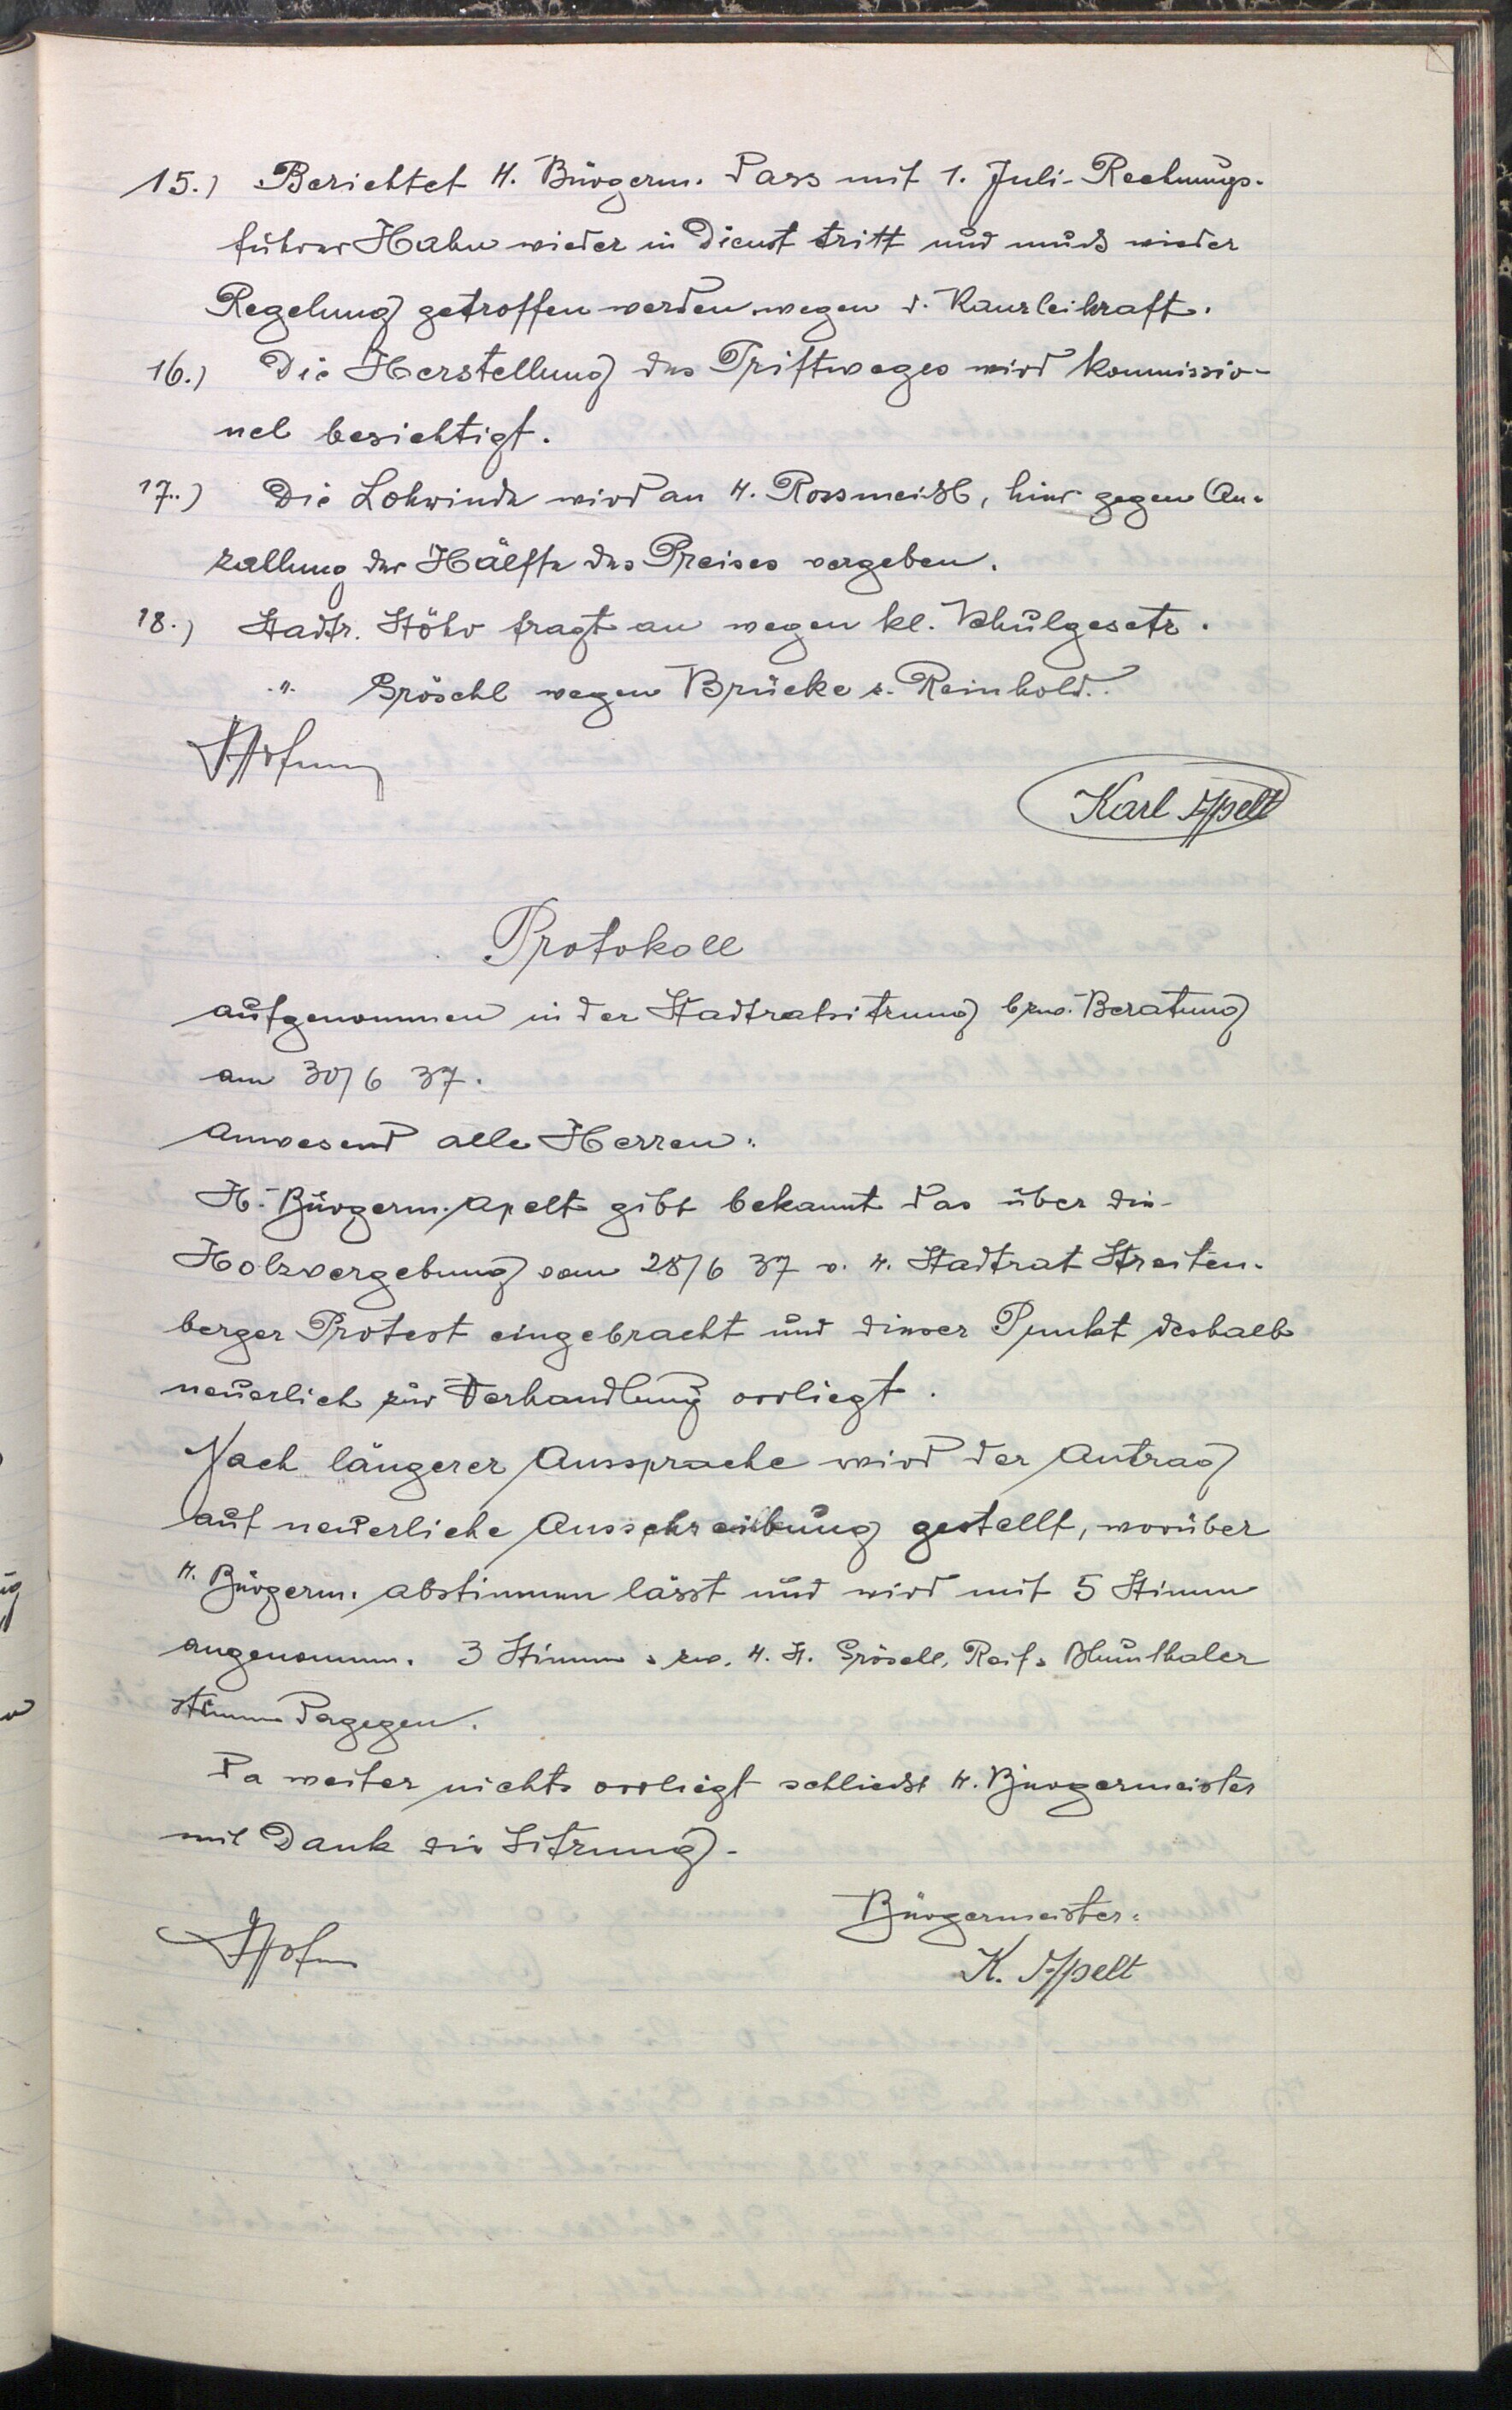 15.) Berichtet H. Bürgerm. dass mit 1. Juli-Rechnungs-
führer Hahn wieder in Dienst tritt und muß wieder
Regelung getroffen werden wegen d. Kanzleikraft.
16.) Die Herstellung des Triftweges wird kommissio-
nel besichtigt.
17.) Die Lohwinde wird an H. Rossmeißl, hier gegen An-
zallung der Hälfte des Preises vergeben.
18.) Stadtr. Stöhr fragt an wegen kl. Schulgesetz.
" Gröschl wegen Brücke z. Reinhold.
Karl Apelt
Protokoll
aufgenommen in der Stadtratsitzung bzw. Beratung
am 30/6 37.
Anwesend alle Herren:
H. Bürgerm. Apelt gibt bekannt das über die
Holzvergebung vom 28/6 37 v. H. Stadtrat Streiten-
berger Protest eingebracht und dieser Punkt deshalb
neuerlich zur Verhandlung vorliegt.
Nach längerer Aussprache wird der Antrag
auf neuerliche Ausschreibung gestellt, worüber
H. Bürgerm. abstimmen lässt und wird mit 5 Stimm
angenomm. 3 Stimm u. zw. H. H. Gröschl, Reif u. Blumthaler
stimm dagegen.
Da weiter nichts vorliegt schließt H. Bürgermeister
mit Dank die Sitzung.
Bürgermeister:
K. Apelt